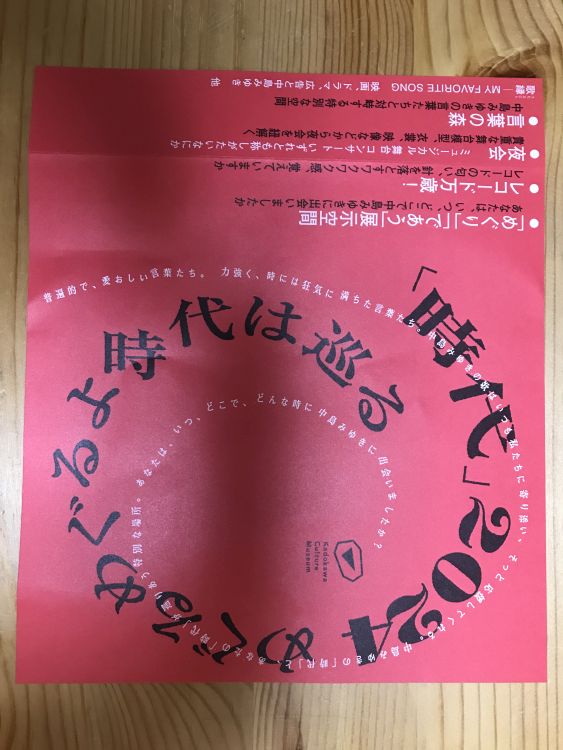 「時代」2024 めぐるめぐるよ時代は巡る
普遍的で、愛おしい言葉たち。 力強く、時には狂気に 満ちた言葉たち。中島みゆきの歌はいつも私たちに寄り添い、そっと応援してくれる。中島みゆきの「時代」と、あなたの「時代」が巡りあう特別な場所。あなたは、いつ、どこで、どんな時に 中島みゆきに 出会いましたか?
Kadokawa
Culture
Museum
●「めぐり」「であう」展示空間
あなたは、いつ、どこで中島みゆきに出会いましたか
●レコード万歳！
レコードの匂い、針を落とすワクワク感、覚えていますか
●夜会 ミュージカル、舞台、コンサート いずれとも称しがたいなにか
貴重な舞台模型、衣裳、映像などから夜会を紐解く
●言葉の森
中島みゆきの言葉たちと対峙する特別な空間
歌縁— MY FAVORITE SONG 映画、ドラマ、広告と中島みゆき 他